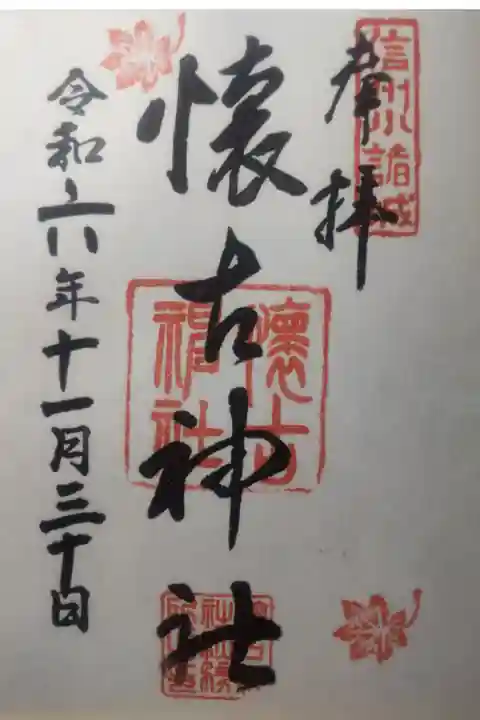 奉拝
信州小諸城
懐古神社
懐古
神社
令和六年十一月三十日